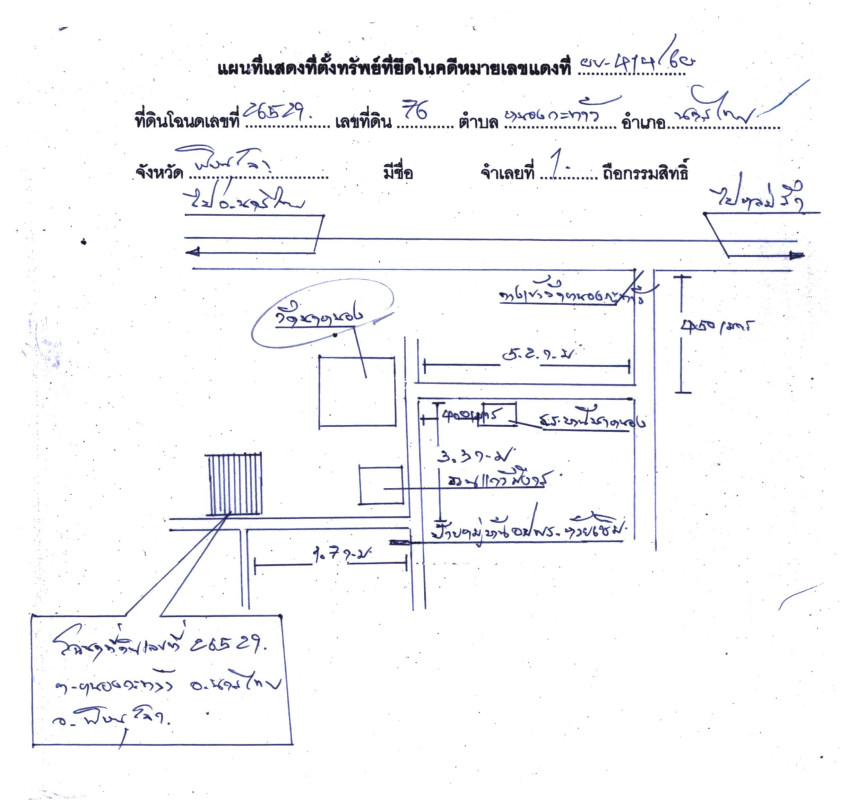 แผนที่แสดงที่ตั้งทรัพย์ที่ยึดในคดีหมายเลขแดงที่
ที่ดินโฉนดเลขที่ 26529. เลขที่ดิน 76 ตำบล หนองกะท้าว อำเภอ นครไทย
จังหวัด พิษณุโลก มีชื่อ จำเลยที่ 1. ถือกรรมสิทธิ์
ไป อ.นครไทย
ไปหล่มสัก
ทางเข้าวัดหนองกะท้าว
450 เมตร
วัดนาตาหนอง
5.2 ก.ม
400 เมตร
3.3 ก.ม
ป้ายหมู่บ้าน
1.7 ก.ม.
โฉนดที่ดินเลขที่ 26529.
ต.หนองกะท้าว อ.นครไทย
จ.พิษณุโลก.